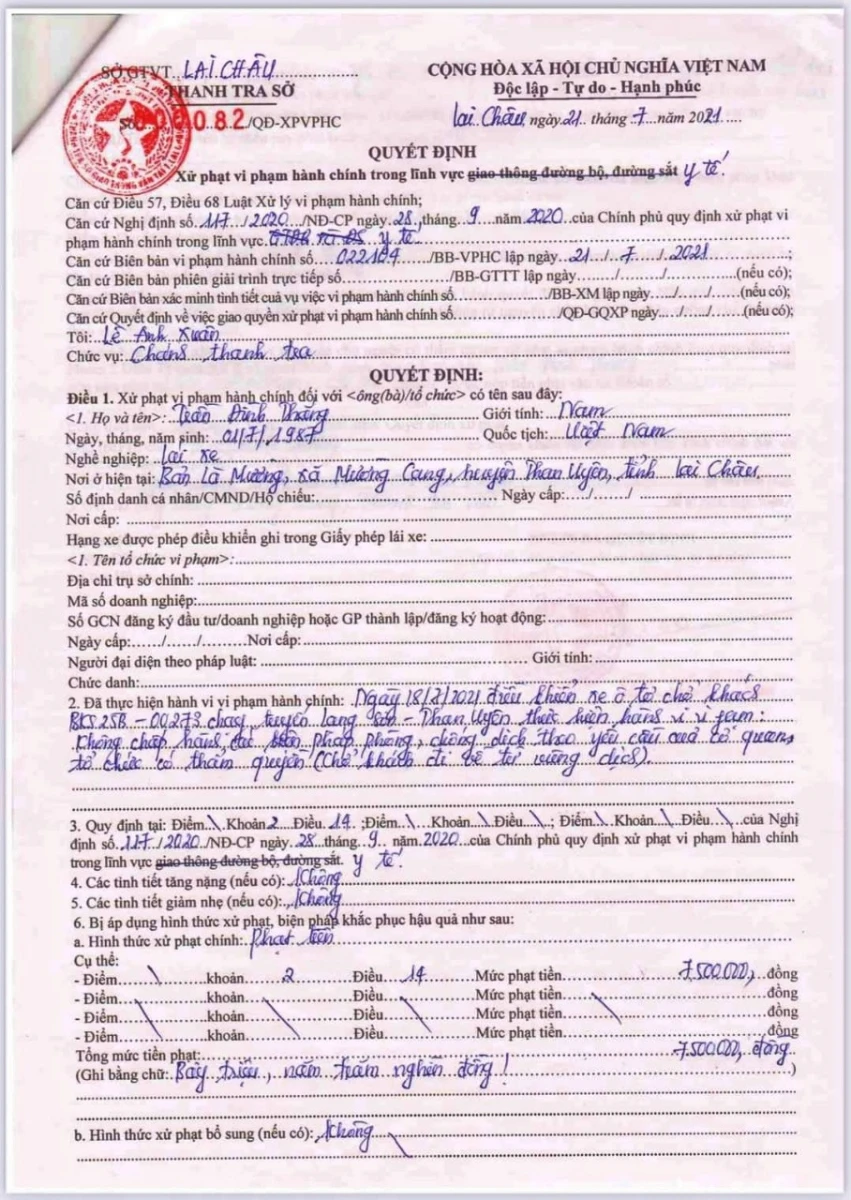 SỞ GTVT LAI CHÂU
CỘNG HÒA XÃ HỘI CHỦ NGHĨA VIỆT NAM
THANH TRA SỞ
Độc lập - Tự do - Hạnh phúc
Số 000082/QĐ-XPVPHC
Lai Châu, ngày 21 tháng 7 năm 2021
QUYẾT ĐỊNH
Xử phạt vi phạm hành chính trong lĩnh vực giao thông đường bộ, đường sắt y tế!
Căn cứ Điều 57, Điều 68 Luật Xử lý vi phạm hành chính;
Căn cứ Nghị định số 117/2020/NĐ-CP ngày 28 tháng 9 năm 2020 của Chính phủ quy định xử phạt vi
phạm hành chính trong lĩnh vực GTĐB và ĐS y tế
Căn cứ Biên bản vi phạm hành chính số 022104/BB-VPHC lập ngày 21/7/2021;
Căn cứ Biên bản phiên giải trình trực tiếp số/BB-GTTT lập ngày...../...../.....(nếu có);
Căn cứ Biên bản xác minh tình tiết cuả vụ việc vi phạm hành chính số...../BB-XM lập ngày...../...../.....(nếu có);
Căn cứ Quyết định về việc giao quyền xử phạt vi phạm hành chính số...../QĐ-GQXP ngày...../...../.....(nếu có);
Tôi: Lê Anh Xuân
Chức vụ: Chánh thanh tra
QUYẾT ĐỊNH:
Điều 1. Xử phạt vi phạm hành chính đối với <ông(bà)/tổ chức> có tên sau đây:
<1. Họ và tên>: Trần Đình Thăng Giới tính: Nam
Ngày, tháng, năm sinh: 01/7/1987 Quốc tịch: Việt Nam
Nghề nghiệp: Lái xe
Nơi ở hiện tại: Bản Là Mường, xã Mường Cang, huyện Than Uyên, tỉnh Lai Châu
Số định danh cá nhân/CMND/Hộ chiếu: Ngày cấp:...../...../.....
Nơi cấp:
Hạng xe được phép điều khiển ghi trong Giấy phép lái xe:
<1. Tên tổ chức vi phạm>:
Địa chỉ trụ sở chính:
Mã số doanh nghiệp:
Số GCN đăng ký đầu tư/doanh nghiệp hoặc GP thành lập/đăng ký hoạt động:
Ngày cấp:...../...../.....Nơi cấp:
Người đại diện theo pháp luật: Giới tính:
Chức danh:
2. Đã thực hiện hành vi vi phạm hành chính: Ngày 18/7/2021 điều khiển xe ô tô chở khách
BKS 25B - 00273 chạy tuyến Lạng Sơn - Than Uyên thực hiện hành vi vi phạm:
Không chấp hành các biện pháp phòng, chống dịch theo yêu cầu của cơ quan,
tổ chức có thẩm quyền (Chở khách đi về từ vùng dịch).
3. Quy định tại: Điểm \ Khoản 2 Điều 14 ;Điểm \ Khoản \ Điều \ ; Điểm \ Khoản \ Điều \ của Nghị
định số 117/2020/NĐ-CP ngày 28 tháng 9 năm 2020 của Chính phủ quy định xử phạt vi phạm hành chính
trong lĩnh vực giao thông đường bộ, đường sắt. y tế!
4. Các tình tiết tăng nặng (nếu có): Không
5. Các tình tiết giảm nhẹ (nếu có): Không
6. Bị áp dụng hình thức xử phạt, biện pháp khắc phục hậu quả như sau:
a. Hình thức xử phạt chính: Phạt tiền
Cụ thể:
- Điểm \ khoản 2 Điều 14 Mức phạt tiền 7.500.000, đồng
- Điểm \ khoản \ Điều \ Mức phạt tiền \ đồng
- Điểm khoản Điều Mức phạt tiền đồng
- Điểm khoản Điều Mức phạt tiền đồng
Tổng mức tiền phạt: 7.500.000, đồng
(Ghi bằng chữ: Bảy triệu, năm trăm nghìn đồng!)
b. Hình thức xử phạt bổ sung (nếu có): Không